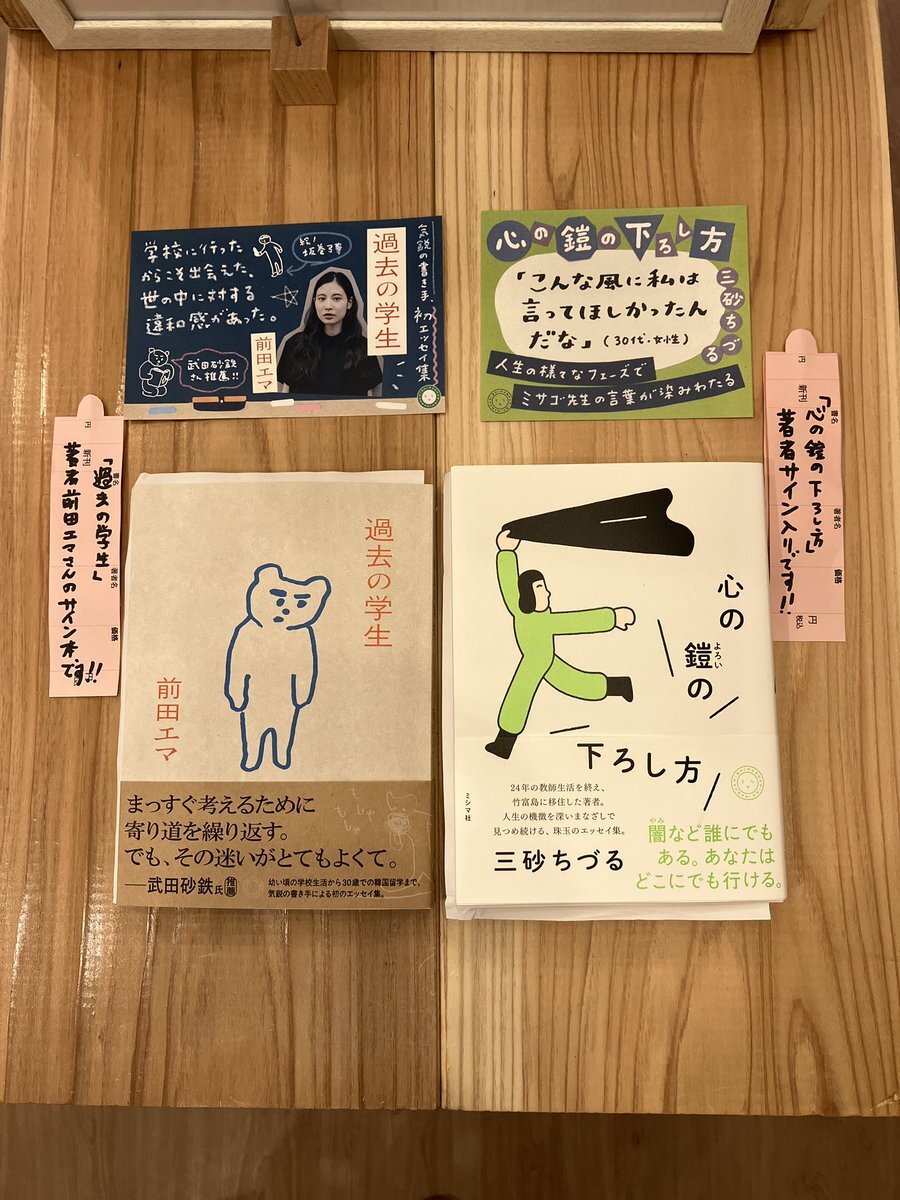 学校に行った
からこそ出会えた、
世の中に対する
違和感があった。
絵！
坂巻弓華
気鋭の書き手、初エッセイ集
過去の学生
前田エマ
武田砂鉄
さん推薦!!
心の鎧の下ろし方
三砂ちづる
「こんな風に私は
言ってほしかったん
だな」(30代・女性)
人生の様々なフェーズで
ミサゴ先生の言葉が染みわたる
円
新刊
書名
著者名
価格
「過去の学生」
著者前田エマさんのサイン本です!!
円
新刊
書名
著者名
価格
円
税込
「心の鎧の下ろし方」
著者サイン入りです!!
過去の学生
前田エマ
まっすぐ考えるために
寄り道を繰り返す。
でも、その迷いがとてもよくて。
──武田砂鉄氏 推薦
幼い頃の学校生活から30歳での韓国留学まで、
気鋭の書き手による初のエッセイ集。
心の
鎧の
よろい
下ろし方
24年の教師生活を終え、
竹富島に移住した著者。
人生の機微を深いまなざしで
見つめ続ける、珠玉のエッセイ集。
三砂ちづる
ミシマ社
やみ
闇など誰にでも
ある。あなたは
どこにでも行ける。